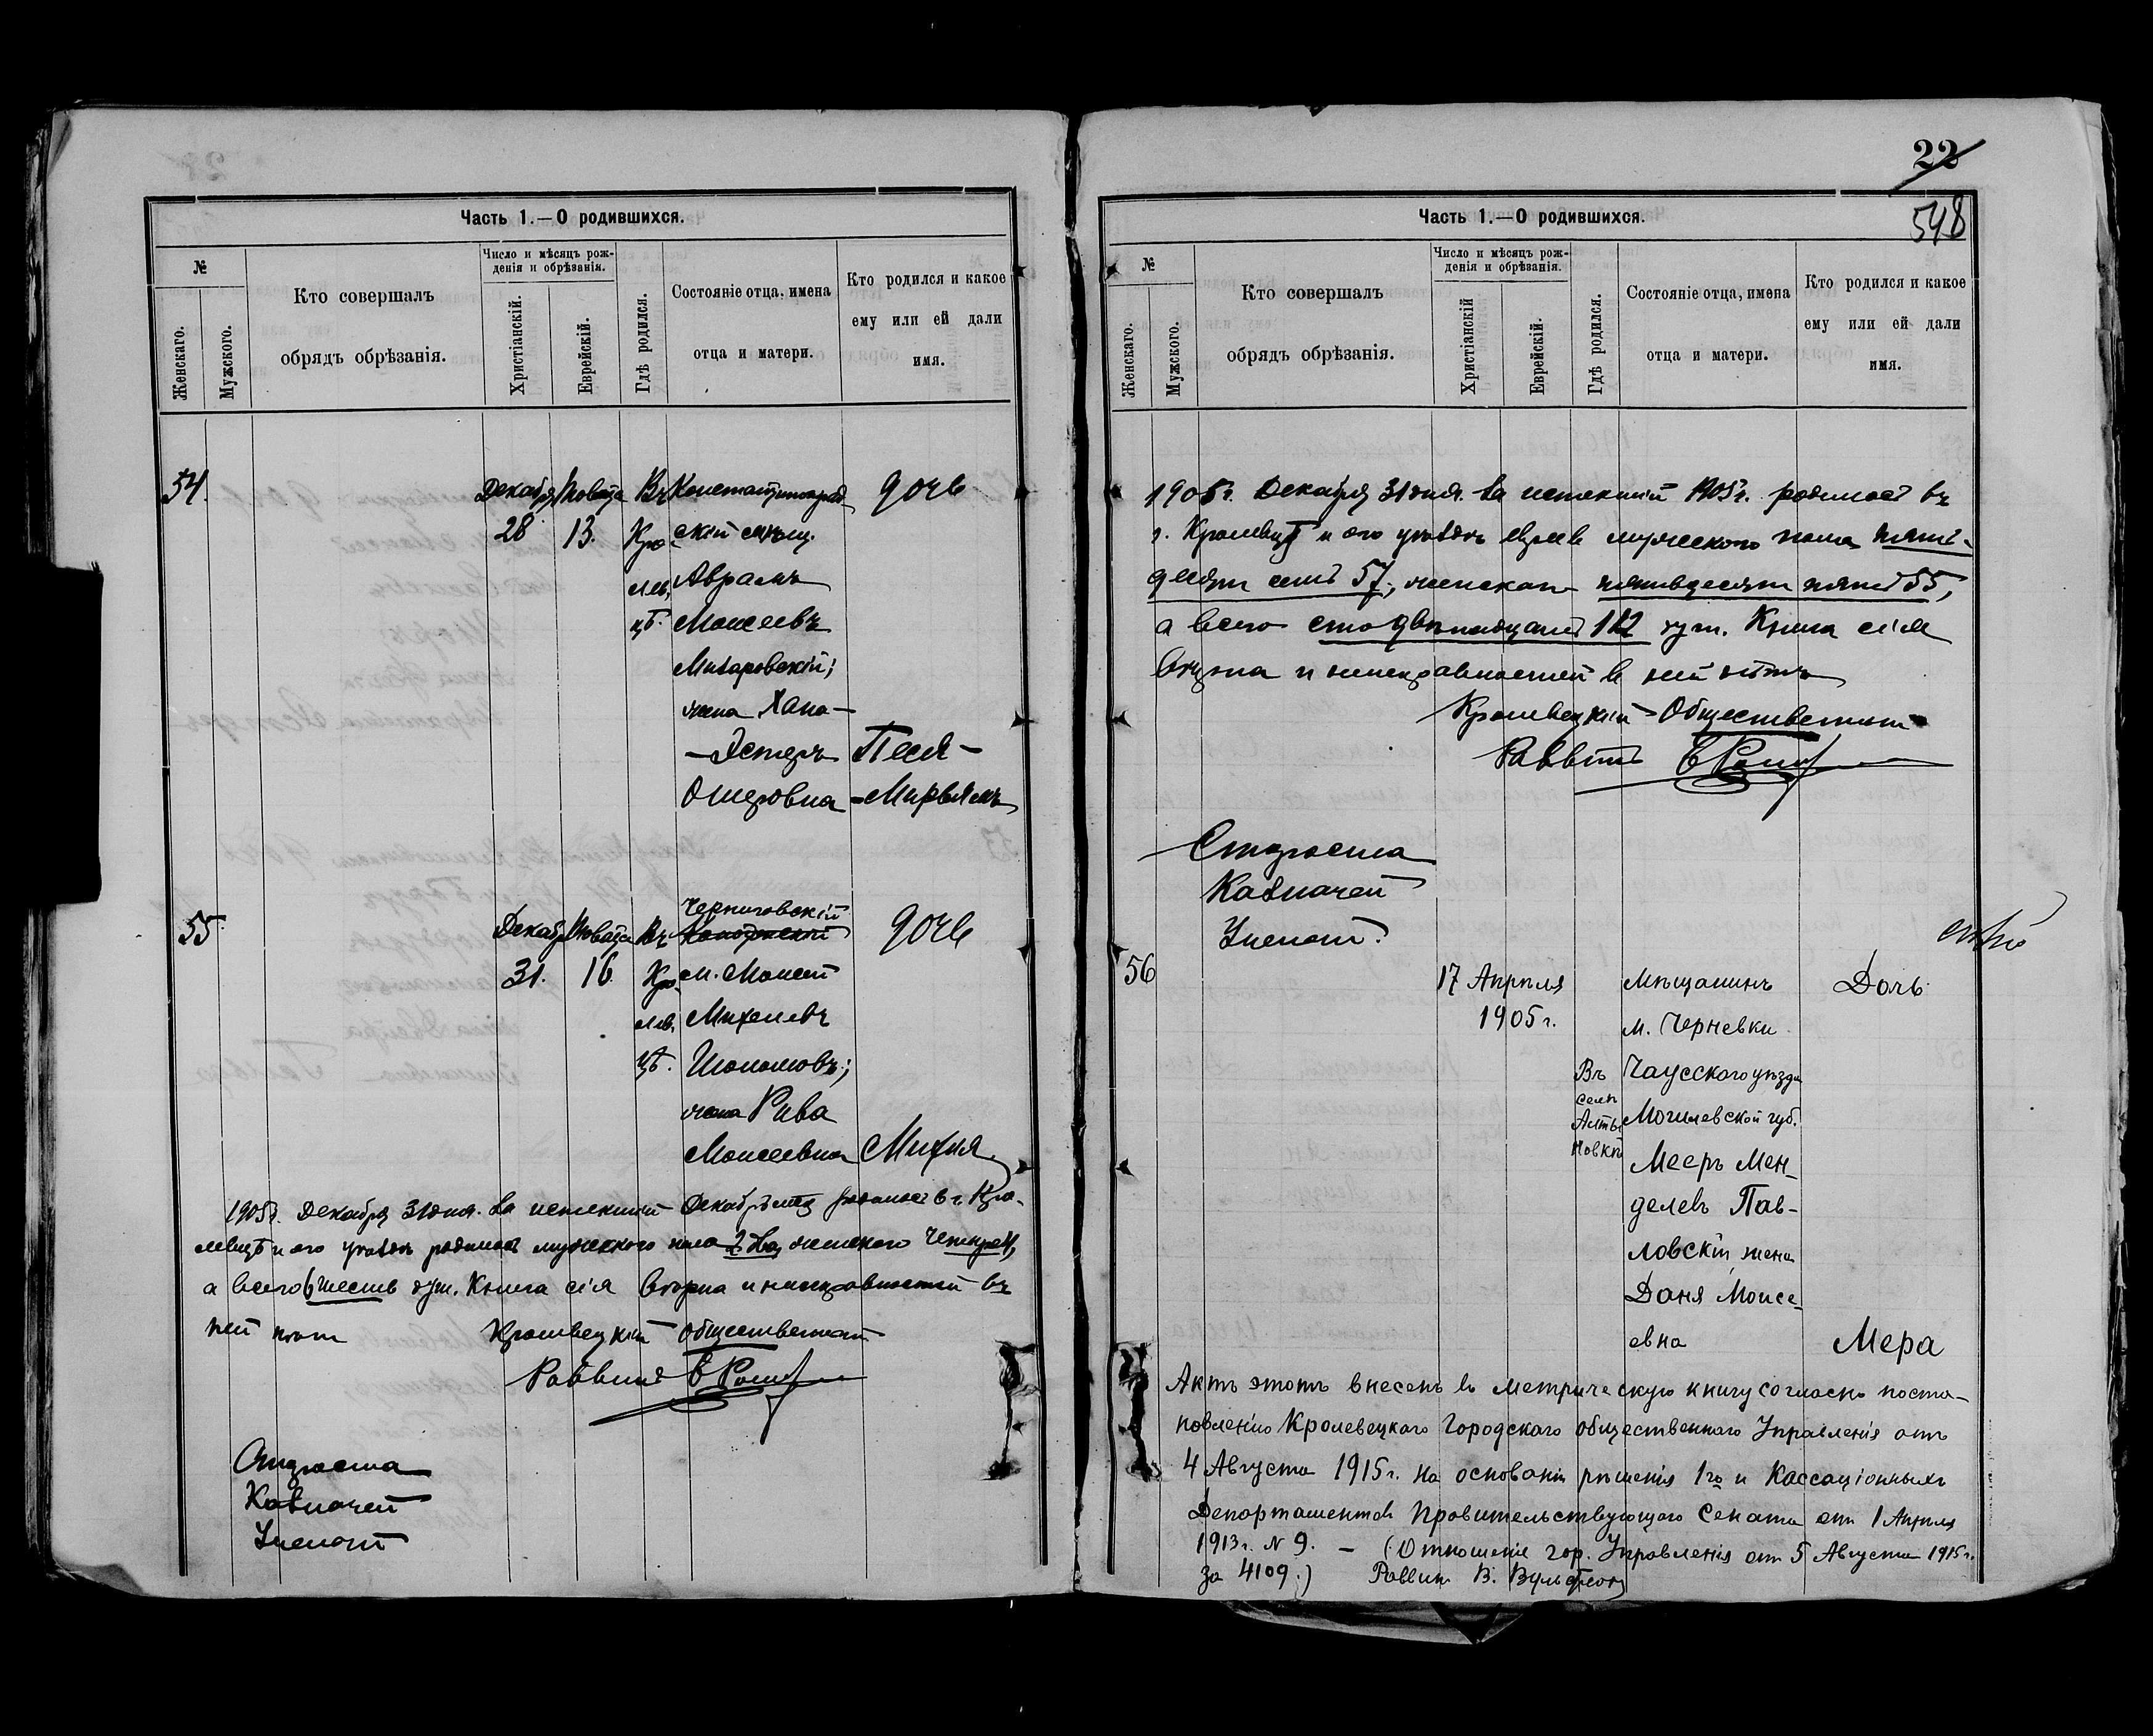 Часть 1.—О родившихся.
№
Женскаго.
Мужского.
Кто совершалъ
обрядъ обрѣзанія.
Число и мѣсяцъ рож-
денія и обрѣзанія.
Христіанскій.
Еврейскій.
Гдѣ родился.
Состояніе отца, имена
отца и матери.
Кто родился и какое
ему или ей дали
имя.
54.
Декабря
28
13.
Въ
Кро-
лев
цѣ.
Константиноград
скій
Аврамъ
Моисеевъ
жена Хана—
—Эстеръ
Ошеровна
дочь
Песя—
55
Декабр
31.
16.
Въ
Кро-
лев.
цѣ.
Черниговскій
м. Моисей
Михелевъ
жена Рива
Моисеевна
дочь
1905 г. Декабря 31 дня. За истекшій Декабрь родилось в г. Кро-
левцѣ и его уѣздѣ родилось мужского пола 2 два, женского четыре 4,
а всего 6 шесть душ. Книга сія вѣрна и неисправностей въ
ней нѣт Кролевецкій Общественный
Раввинъ
Староста
Казначей
Ученый
22
548
Часть 1.—О родившихся.
№
Женскаго.
Мужского.
Кто совершалъ
обрядъ обрѣзанія.
Число и мѣсяцъ рож-
денія и обрѣзанія.
Христіанскій
Еврейскій.
Гдѣ родился.
Состояніе отца, имена
отца и матери.
Кто родился и какое
ему или ей дали
имя.
1905 г. Декабря 31 дня. За истекшій 1905 г. родилось въ
г. Кролевцѣ и его уѣздѣ мужеского пола пять-
десят семь 57, женскаго пятьдесят пять 55,
а всего сто двѣнадцать 112 душ. Книга сія
вѣрна и неисправностей в ней нѣтъ
Кролевецкій Общественный
Раввинъ
Староста
Казначей
Ученый.
56
17 Апрѣля
1905 г.
Въ
селѣ
Алты
новкѣ
Мѣщанинъ
м. Черневки
Чаусского уѣзда
Могилевской губ.
Мееръ Мен-
делевъ Пав-
ловскій, жена
Даня Моисе-
евна
Дочь
Мера
Актъ этотъ внесенъ въ метрическую книгу согласно поста-
новленію Кролевецкаго Городского общественного Управленія отъ
4 Августа 1915 г. на основаніи рѣшенія 1го и Кассаціонныхъ
Департаментовъ Правительствующаго Сената отъ 1 Апрѣля
1913 г. N 9. — (Отношеніе гор. Управленія от 5 Августа 1915 г.
за 4109.) Раввин В. Вульфсон